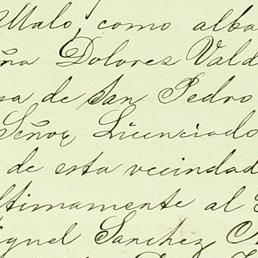 Malo, como alba
ña Dolores Vald
sa de San Pedro
Señor Licenciado
de esta vecindad
ltimamente al
iguel Sanchez